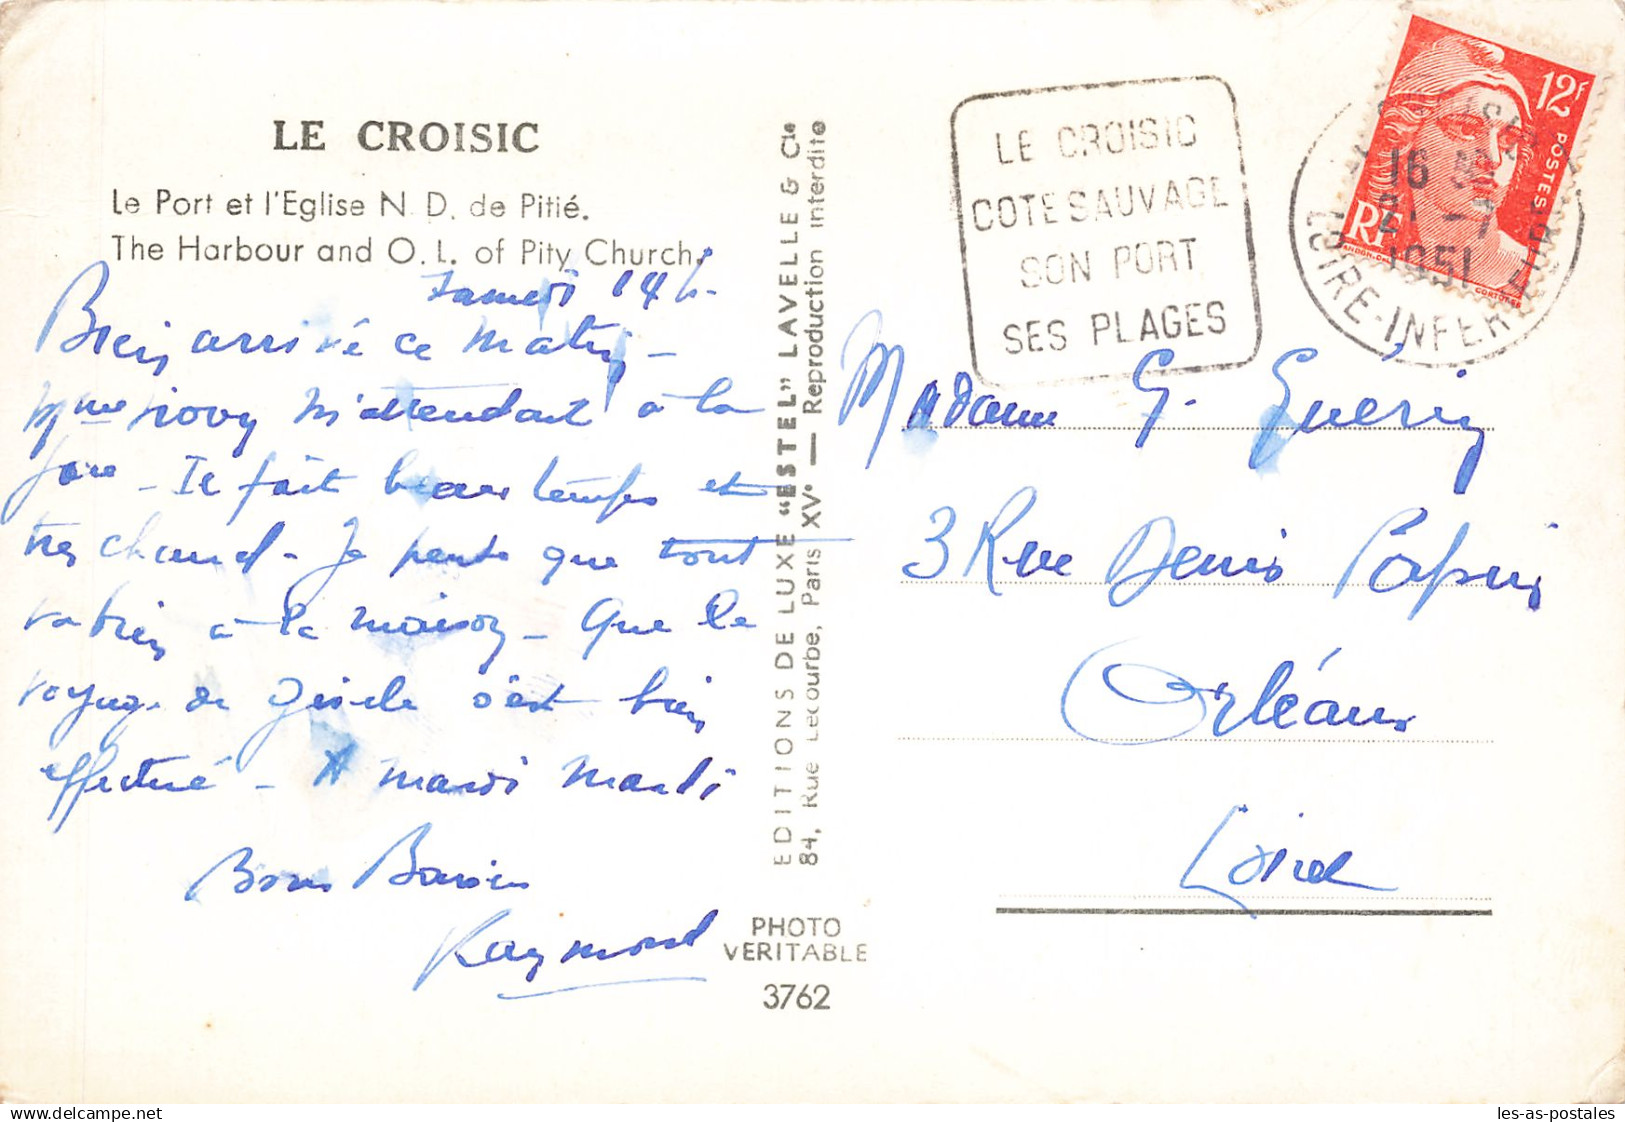 LE CROISIC
Le Port et l'Eglise N. D. de Pitié.
The Harbour and O. L. of Pity Church.
Samedi 14 h.
Bien arrivé ce matin -
Mme m'attendant à la
gare - Il fait beau temps et
très chaud - Je pense que tout
va bien à la maison - Que le
voyage de Gisèle s'est bien
effectué - A mardi matin
Bons Baisers
Raymond
EDITIONS DE LUXE "ESTEL" LAVELLE & Cie
84, Rue Lecourbe, Paris XVe — Reproduction Interdite
PHOTO
VERITABLE
3762
LE CROISIC
COTE SAUVAGE
SON PORT
SES PLAGES
12F
POSTES
RF
16 30
21 - 7
1951
LOIRE-INFERIEURE
Madame G. Guérin
3 Rue Denis Papin
Orléans
Loiret
les-as-postales